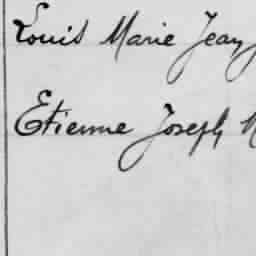 Louis Marie Jean
Etienne Joseph